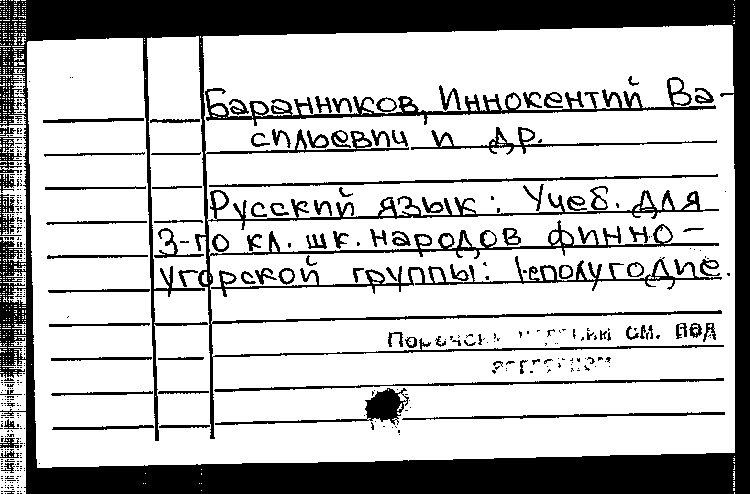 Баранников, Иннокентий Ва-
сильевич и др.
Русский язык: Учеб. для
3-го кл. шк. народов финно-
угорской группы: 1-е полугодие.
см. под